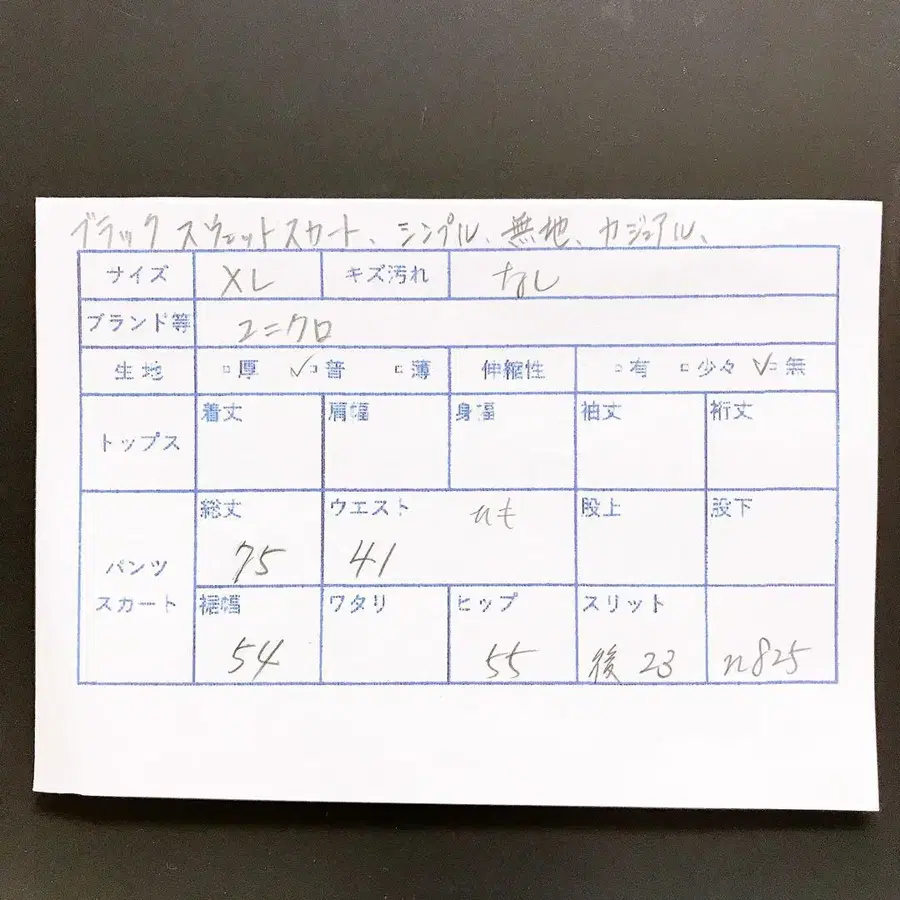 ブラック スウェットスカート、シンプル、無地、カジュアル、
サイズ XL キズ汚れ なし
ブランド等 ユニクロ
生地 □厚 ✓□普 □薄 伸縮性 □有 □少々 ✓□無
トップス 着丈 肩幅 身幅 袖丈 裄丈
パンツ スカート
総丈 75 ウエスト 41 股上 股下
裾幅 54 ワタリ ヒップ 55 スリット 後 23 n825